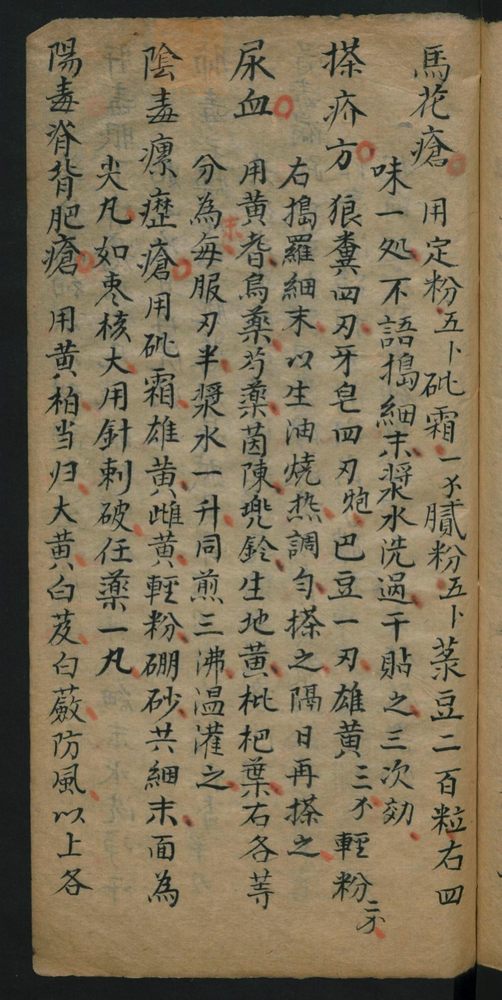 馬花瘡　用定粉五卜砒霜一不膩粉五卜菉豆二百粒右四
味一処不語搗細末漿水洗過干貼之三次効
搽疥方　狼糞四刃牙皂四刃炮巴豆一刃雄黄三不輕粉二不
右搗羅細末以生油燒热調勻搽之隔日再搽之
尿血　用黄耆烏藥芍藥茵陳兠鈴生地黄枇杷葉右各等
分為末每服刃半漿水一升同煎三沸温灌之
陰毒瘰癧瘡用砒霜雄黄雌黄輕粉硼砂共細末面為
尖丸如枣核大用針刺破任藥一丸
陽毒脊背肥瘡　用黄柏当归大黄白芨白蘞防風以上各